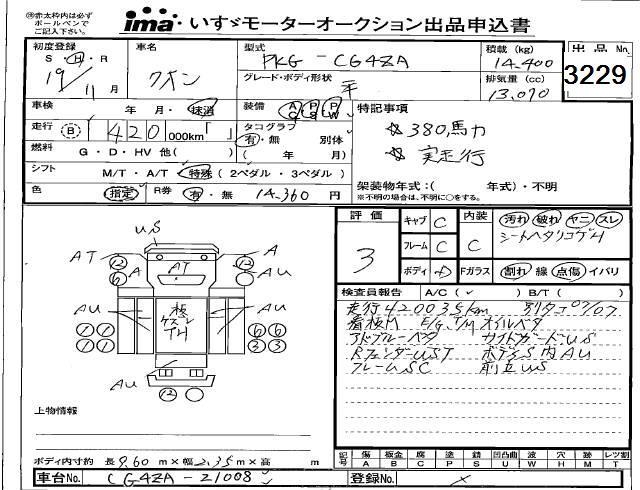 ㊟赤太枠内は必ず
ボールペンで
ご記入下さい。
ima いすゞモーターオークション出品申込書
初度登録 S・H・R 19年 11月
車名 クオン
型式 PKG - CG4ZA
グレード・ボディ形状 平
積載 (kg) 14,400
排気量 (cc) 13,070
出品No. 3229
車検 年 月・抹消
装備 AC PS PW
特記事項
☆380馬力
☆実走行
走行 B 420 000km「 」
タコグラフ 有・無 別体
( 年 月)
燃料 G・D・HV 他( )
シフト M/T・A/T・特殊 (2ペダル・3ペダル)
色 指定 R券 有・無 14,360 円
架装物年式:( 年式)・不明
※不明の場合は、不明に○をする。
評価 3
キャブ C
フレーム C
ボディ
内装 C 汚れ 破れ ヤニ スレ
シートヘタリコゲH
Fガラス 割れ 線 点傷 イバリ
検査員報告 A/C( ✓ ) B/T( )
走行420035km
看板M E/G、T/M オイルベタ
アドブルーベタ サイドガードUS
RフェンダーUST ボデーS内AU
フレームSC 前立US
US
AT
A
12
12
6
A
AT
AU
AU
板
TH
AU
1 1
1 1
6 6
3 3
AU
12
上物情報
ボディ内寸約 長 9.60 m×幅 2.35 m×高 m
記号 傷A 板金B 腐C 塗P 錆S 凹凸曲U 波W 穴H 跡M 酢T レツ割
車台No. CG4ZA - 21008
登録No. ×